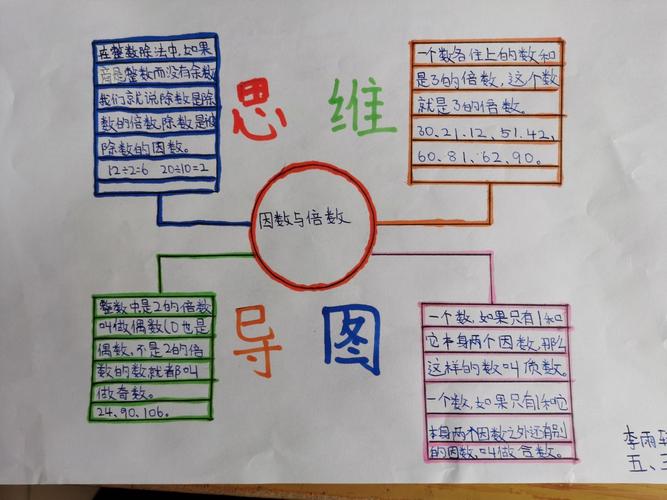 在整数除法中,如果
商是整数而没有余数
我们就说除数是除
数的倍数,除数是被
除数的因数。
12÷2=6 20÷10=2
思维
一个数各位上的数和
是3的倍数,这个数
就是3的倍数。
30.21.12、51.42、
60.81、62、90。
因数与倍数
整数中,是2的倍数
叫做偶数(0也是
偶数,不是2的倍
数的数就都叫
做奇数。
24、90、106。
导图
一个数,如果只有1和
它本身两个因数,那么
这样的数叫质数。
一个数,如果只有1和它
本身两个因数之外还有别
的因数,叫做合数。
李雨
五、三